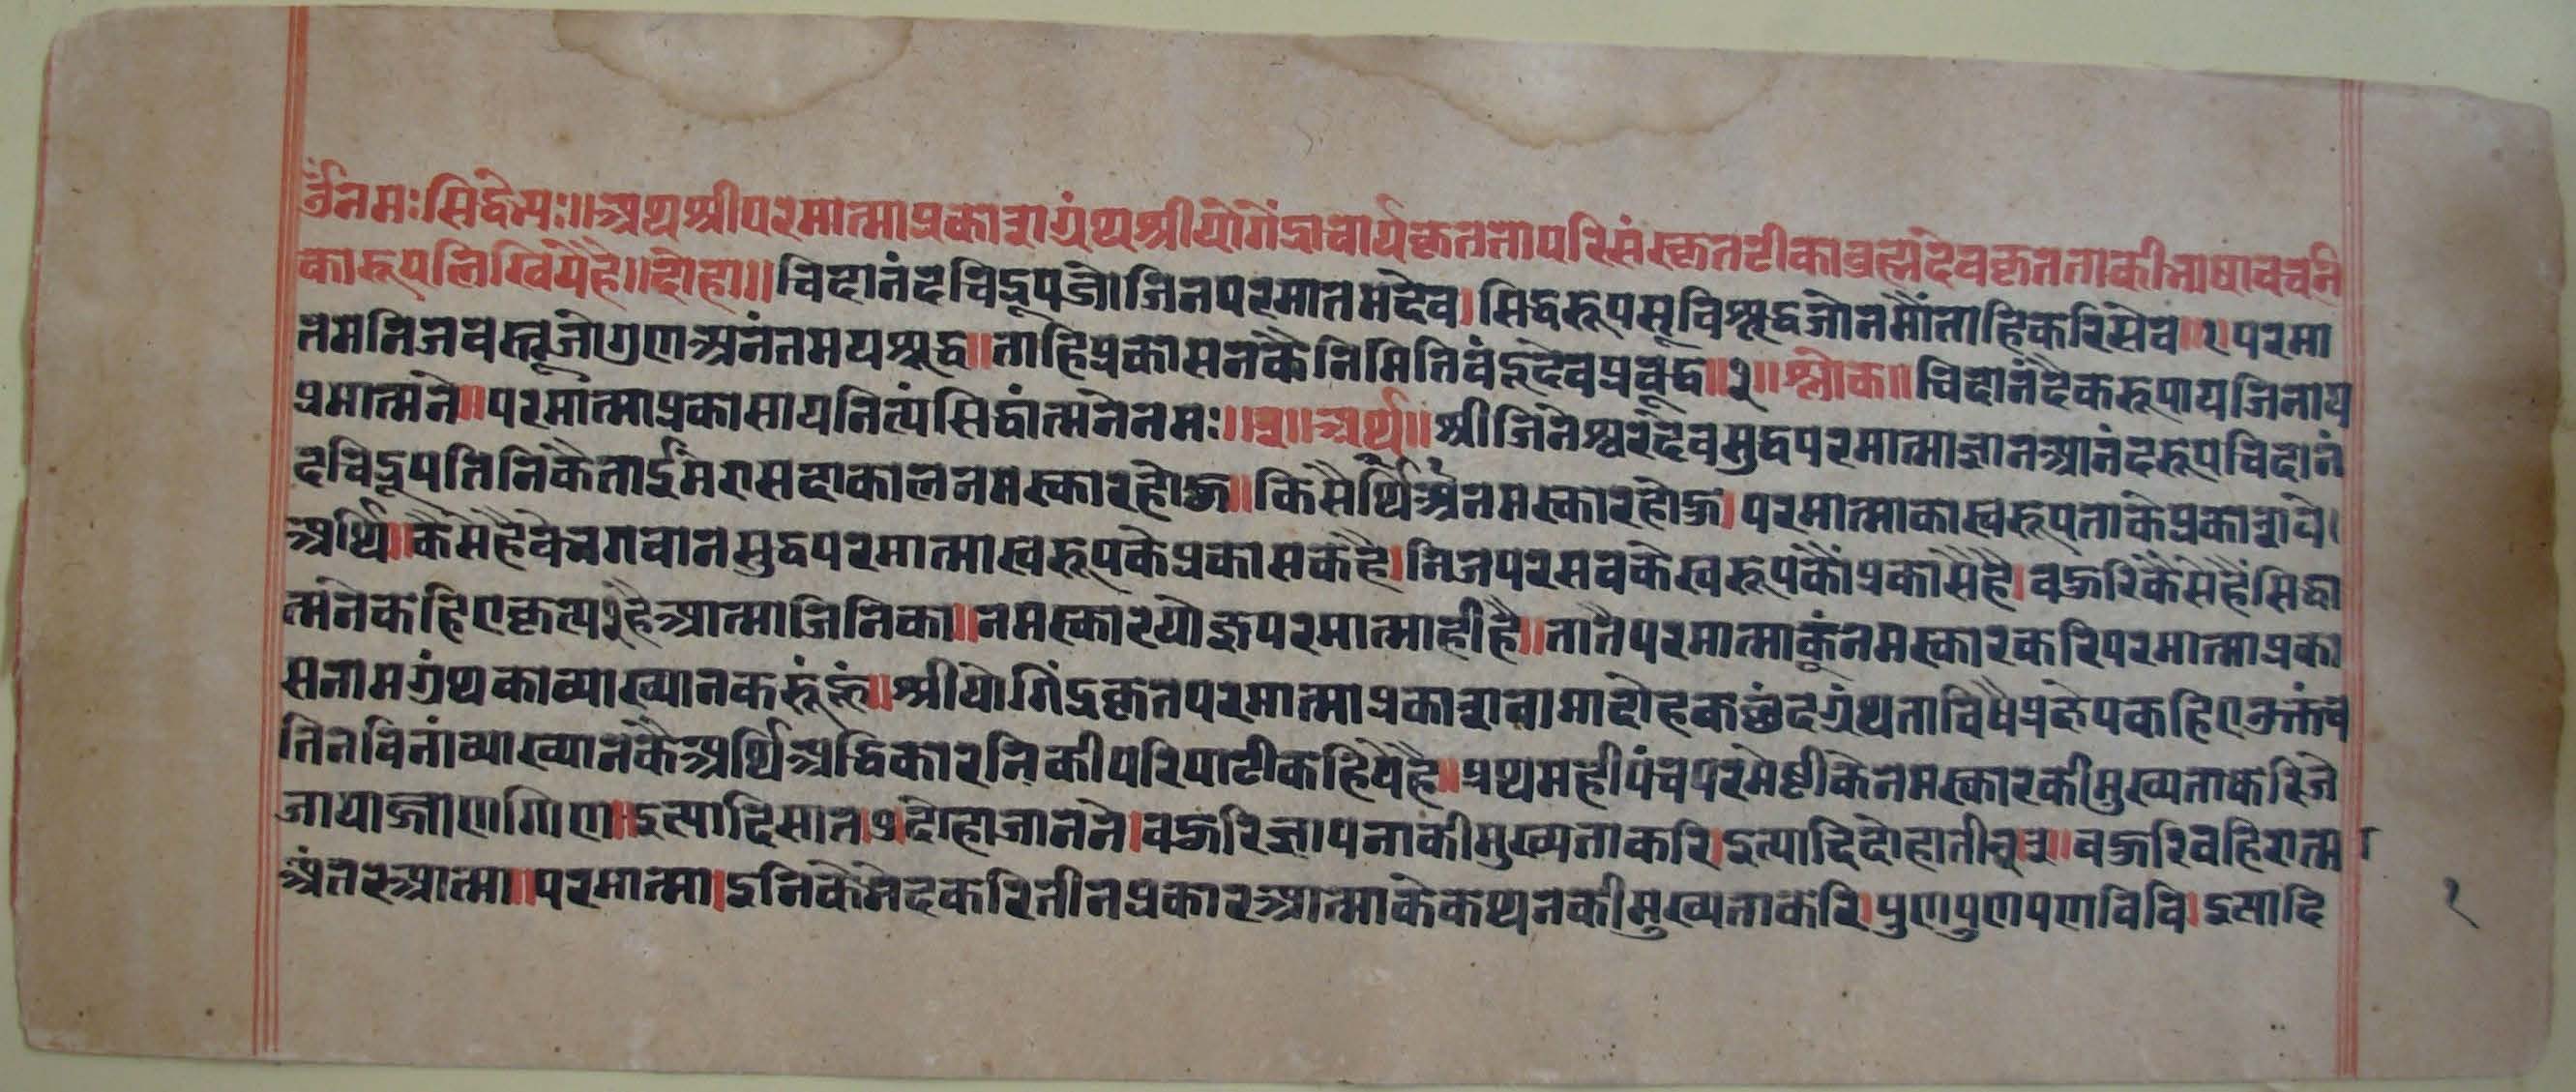 ॐनमःसिद्धेभ्यः॥अथश्रीपरमात्माप्रकाशग्रंथश्रीयोगेंद्राचार्यकृततापरिसंस्कृतटीकाब्रह्मदेवकृतताकीभाषावचनि
कारूपलिखियेहै॥दोहा॥चिदानंदचिद्रूपजोजिनपरमातमदेव।सिद्धरूपसूविशूद्धजोनमौंताहिकरिसेव॥१परमा
तमनिजवस्तूजोगुणअनंतमयशूद्ध॥ताहिप्रकासनकैनिमितिवंदूदेवप्रवूद्ध॥२॥श्लोक॥चिदानंदैकरूपायजिनाय
प्रमात्मने॥परमात्माप्रकासायनित्यंसिद्धांत्मनेनमः॥३॥अर्थ॥श्रीजिनेश्वरदेवसुद्धपरमात्माज्ञानआनंदरूपचिदानं
दचिद्रूपतिनिकैताईमेरासदाकालनमस्कारहोऊ॥किसैअर्थिनमस्कारहोऊ।परमात्माकास्वरूपताकेप्रकाशवे।
अर्थि॥कैसेहैवेभगवानसुद्धपरमात्मास्वरूपकेप्रकासकहै।निजपरसवकेस्वरूपकौंप्रकासैहै।वऊरिकैसेहैंसिद्धा
त्मनेकहिएकृत्यहैआत्माजिनिका॥नमस्कारयोज्ञपरमात्माहीहै॥तातैपरमात्माकूंनमस्कारकरिपरमात्माप्रका
सनामग्रंथकाव्याख्यानकरूंहूं॥श्रीयोगिंद्रकृतपरमात्माप्रकाशनामादोहकछंदग्रंथताविषैप्रक्षेपकहिएउक्तंच
तिनविनांव्याख्यानकैअर्थिअधिकारनिकीपरिपाटीकहियेहै॥प्रथमहीपंचपरमेष्टीकेनमस्कारकीमुख्यताकरिजे
जायाज्जाणग्गिए॥इत्यादिसात७दोहाजानने।वऊरिज्ञापनाकीमुख्यताकरि।इत्यादिदोहातीन३॥वऊरिवहिरात्मा
अंतरआत्मा॥परमात्मा।इनिकेभेदकरितीनप्रकारआत्माकेकथनकीमुख्यताकरि।पुणपुणपणविवि।इत्यादि
१